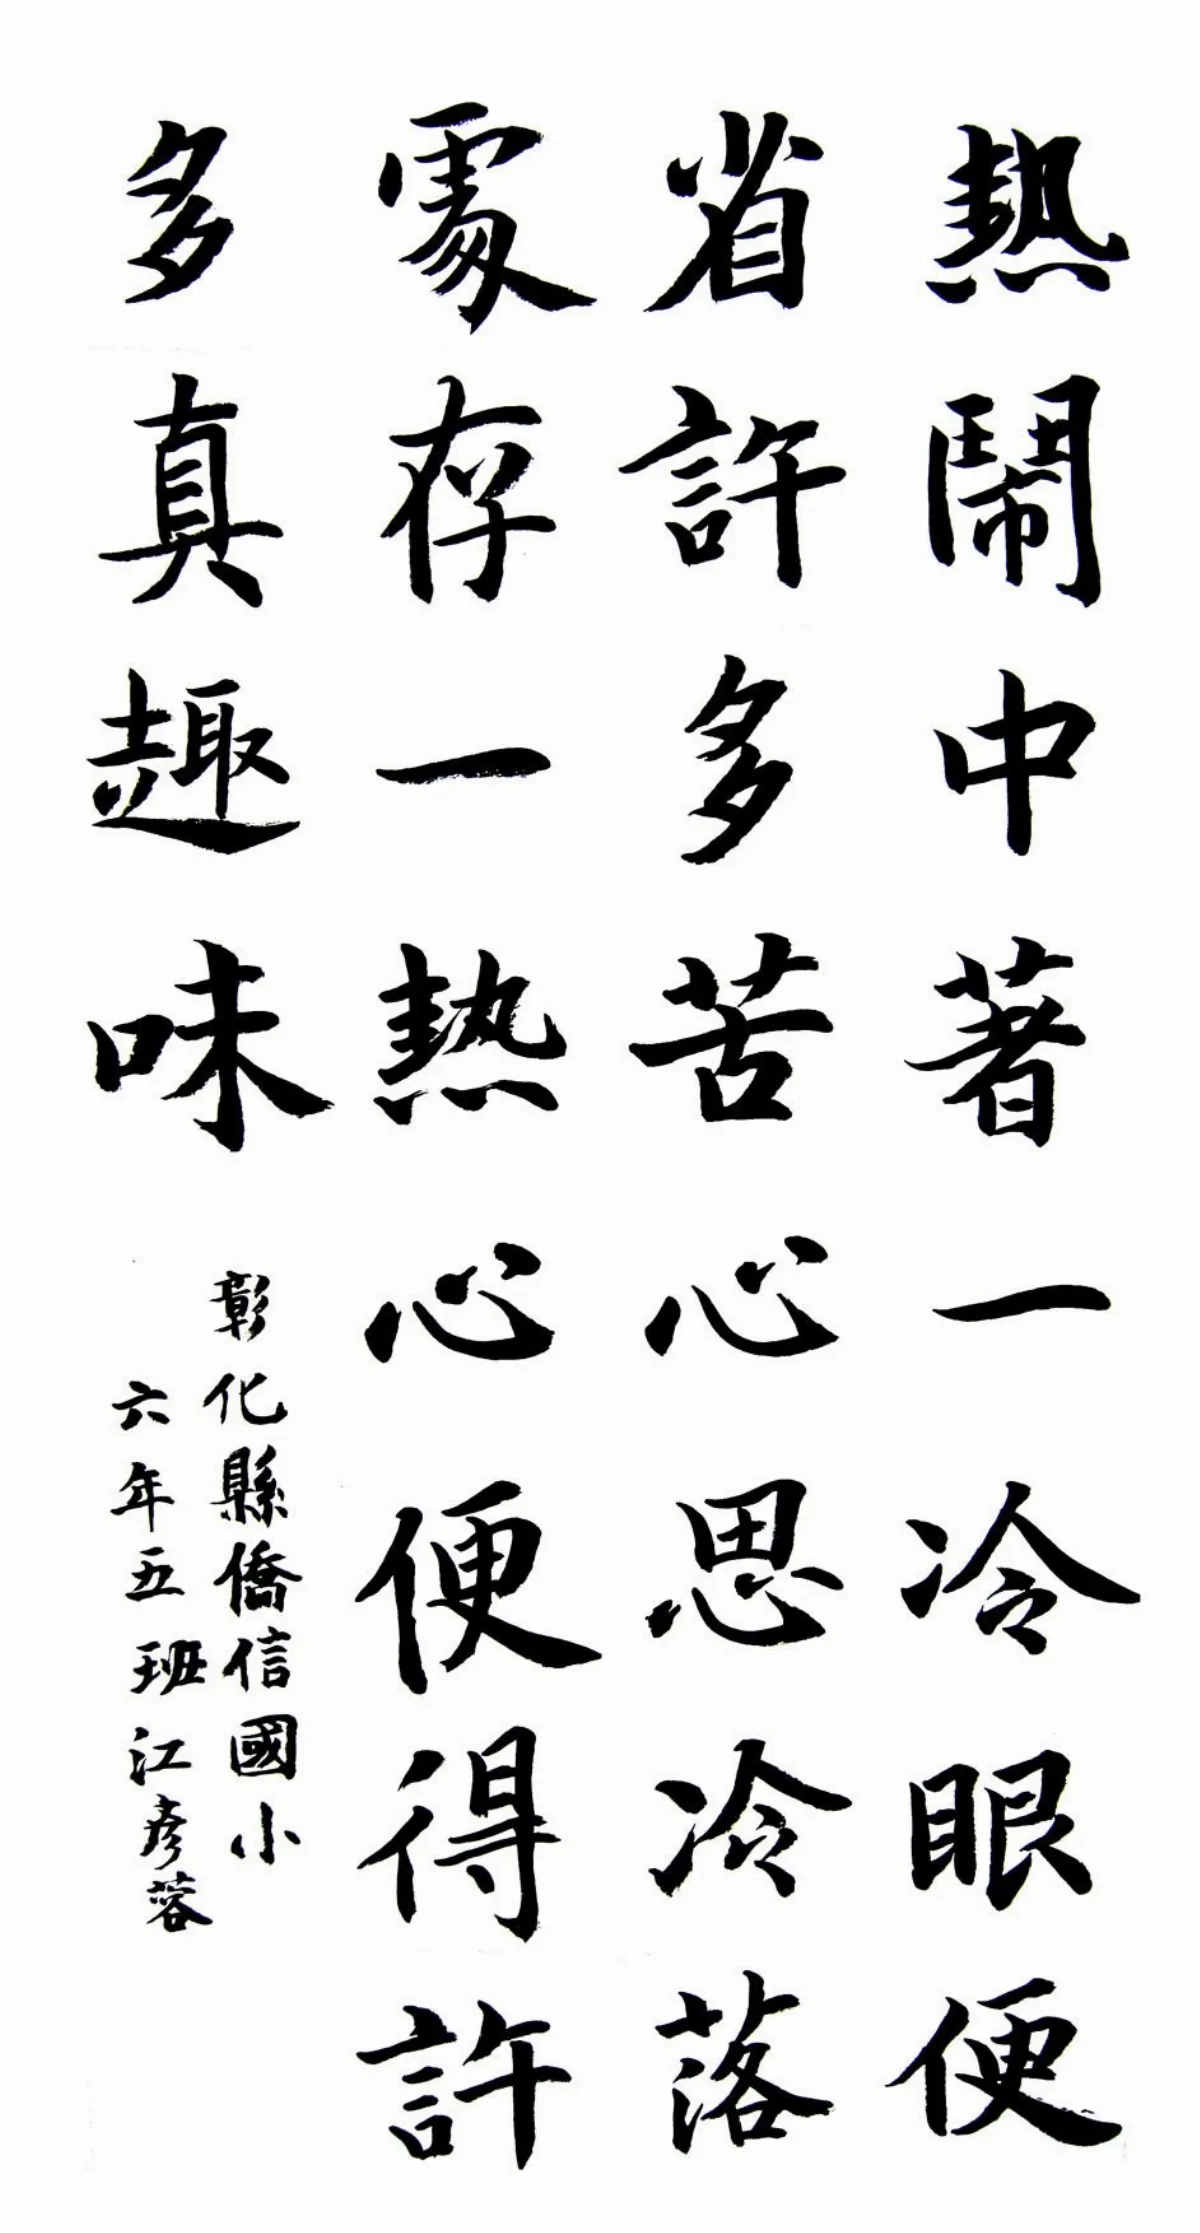 熱鬧中著一冷眼便
省許多苦心思冷落
處存一熱心便得許
多真趣味
彰化縣僑信國小
六年五班江彥蓉